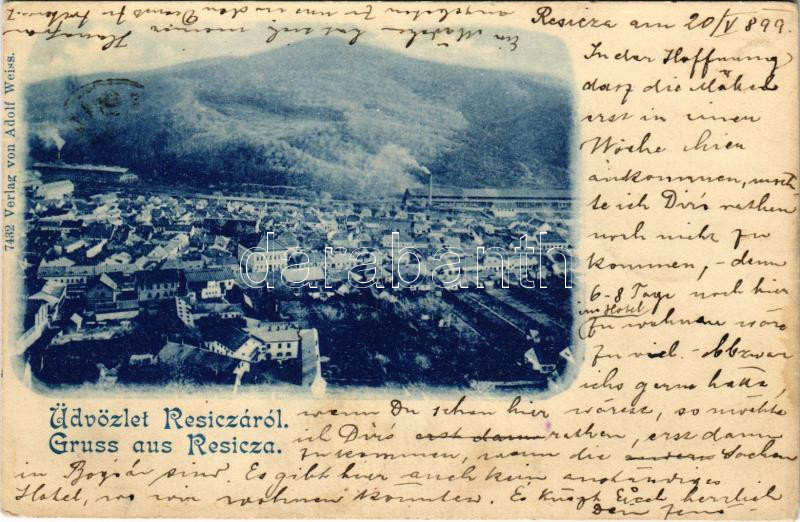 Resicza am 20/V 899.
In der Hoffnung
darf die Mäken
erst in einen
Woche hier
ankommen, möch-
te ich Dirs rathen
noch nicht zu
kommen, - denn
6-8 Tage noch hier
im Hotel
zu wohnen wäre
zu viel. - Obzwar
ichs gerne hätte,
wenn Du schon hier wärest, so möchte
ich Dirs erst dann rathen, erst dann
zu kommen, wenn die andern Sachen
in Bogsán sind. Es gibt hier auch kein anständiges
Hotel, wo wir wohnen könnten. Es küsst Euch herzlich
Dein Jenő
Ein Mädchen hat sich
7432 Verlag von Adolf Weiss.
Üdvözlet Resiczáról.
Gruss aus Resicza.
darabanth